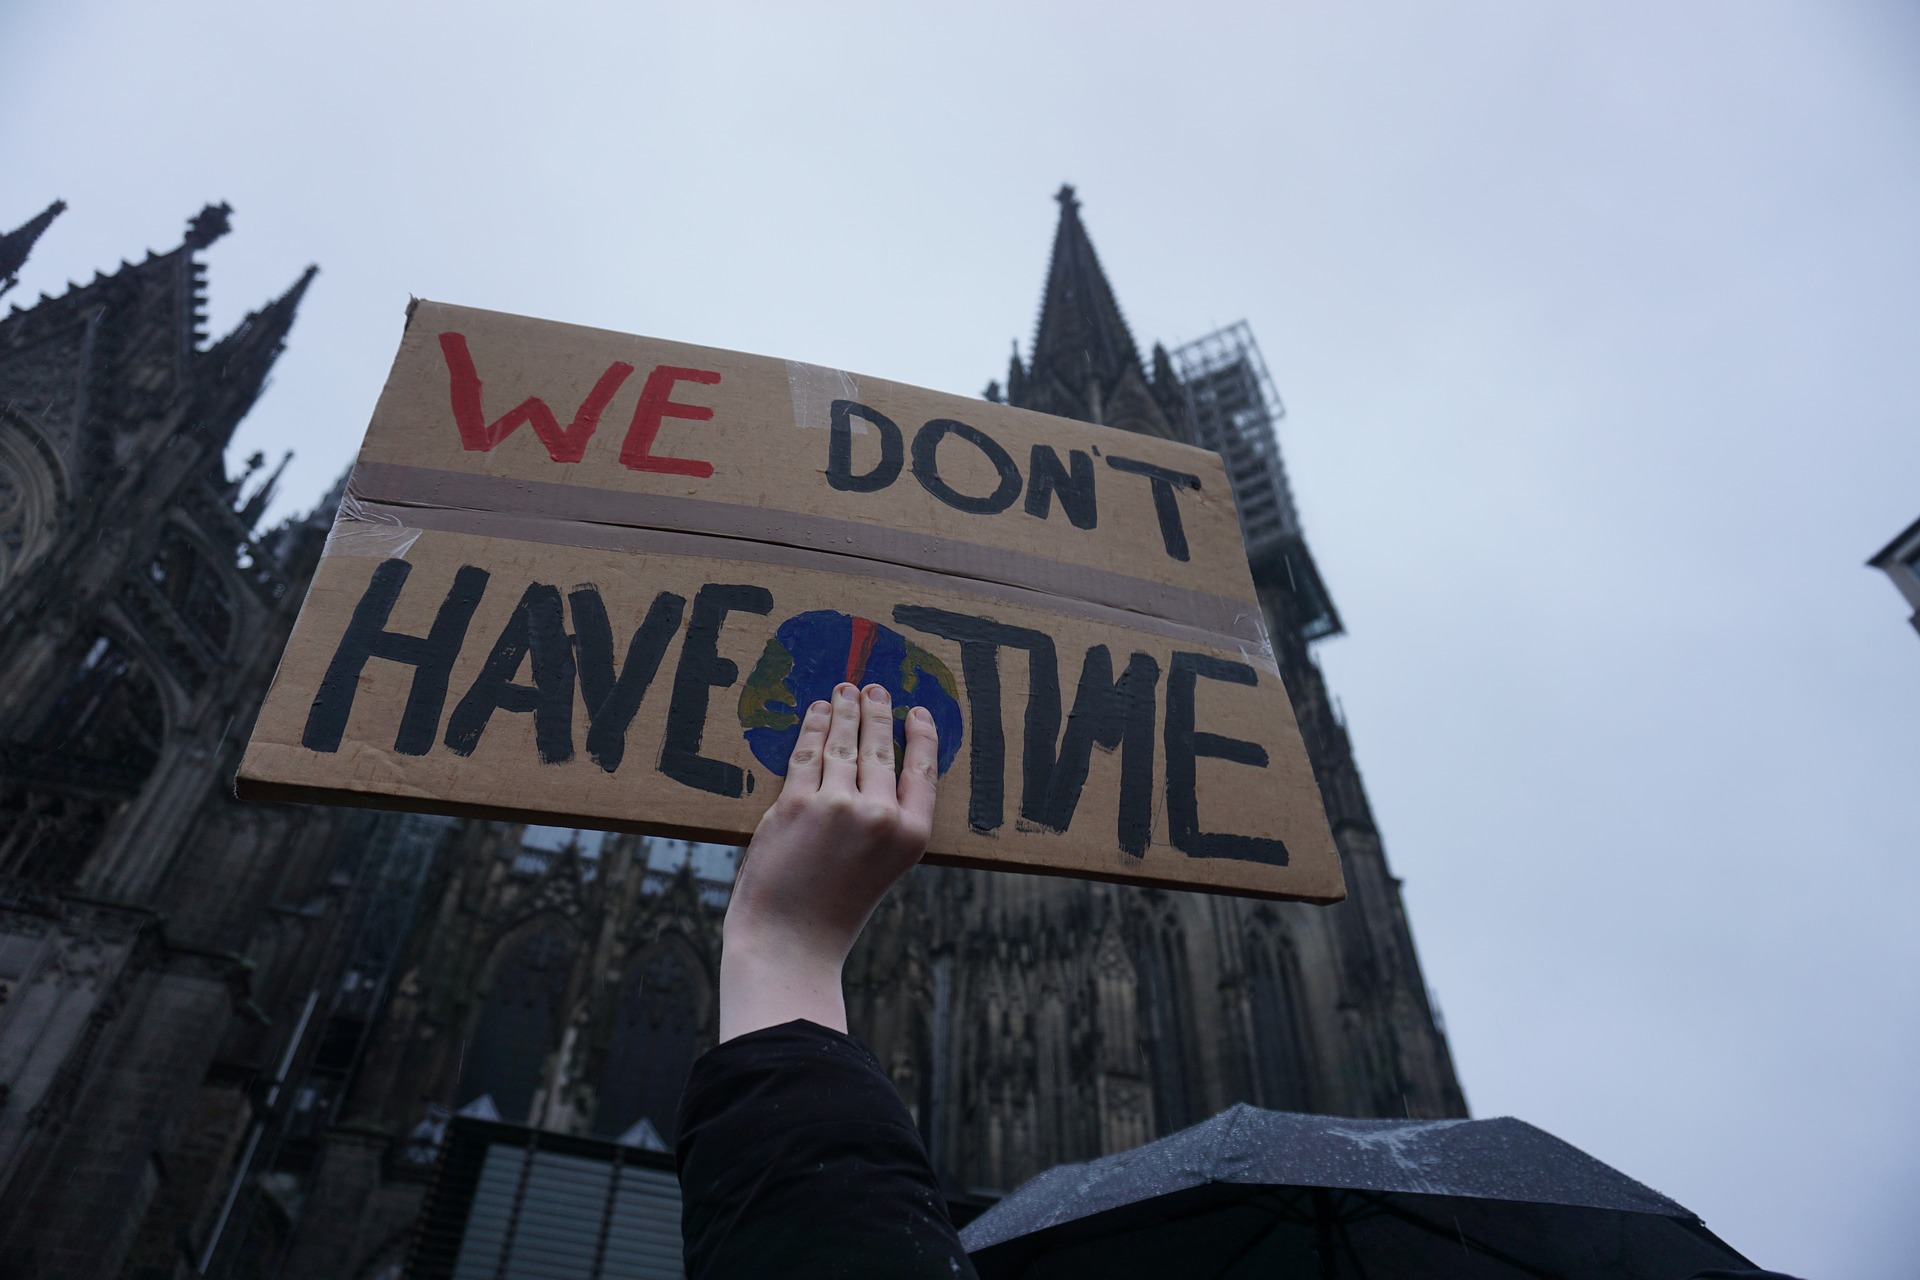 WE DON'T
HAVE TIME